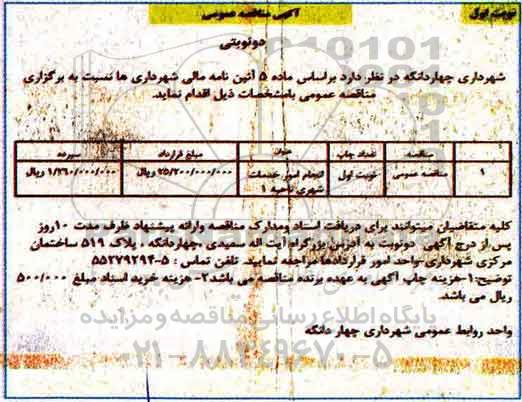 نوبت اول
آگهی مناقصه عمومی
دونوبتی
شهرداری چهاردانگه در نظر دارد براساس ماده ۵ آئین نامه مالی شهرداری ها نسبت به برگزاری
مناقصه عمومی بامشخصات ذیل اقدام نماید.
مناقصه تعداد چاپ عنوان مبلغ قرارداد سپرده
۱ مناقصه عمومی نوبت اول انجام امور خدمات ۲۵/۲۰۰/۰۰۰/۰۰۰ ریال ۱/۲۶۰/۰۰۰/۰۰۰ ریال
شهری ناحیه ۱
کلیه متقاضیان میتوانند برای دریافت اسناد ومدارک مناقصه وارائه پیشنهاد ظرف مدت ۱۰روز
پس از درج آگهی دونوبت به آدرس بزرگراه آیت اله سعیدی ،چهاردانگه ، پلاک ۵۱۹ ساختمان
مرکزی شهرداری-واحد امور قراردادها مراجعه نمایید. تلفن تماس : ۵-۵۵۲۷۹۲۹۴
توضیح:۱-هزینه چاپ آگهی به عهده برنده مناقصه می باشد۲- هزینه خرید اسناد مبلغ ۵۰۰/۰۰۰
ریال می باشد.
پایگاه اطلاع رسانی مناقصه و مزایده
واحد روابط عمومی شهرداری چهار دانگه
۰۲۱-۸۸۳۴۹۶۷۰-۵